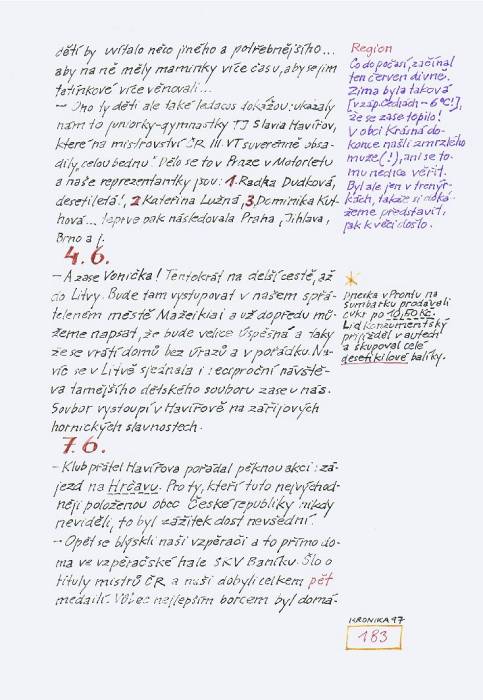 dětí by uvítalo něco jiného a potřebnějšího...
aby na ně měly maminky více času, aby se jim
tatínkové více věnovali...
- Ono ty děti ale také ledacos dokážou: ukázaly
nám to juniorky-gymnastky TJ Slavia Havířov,
které na mistrovství ČR III. VT suverénně obsa-
dily "celou bednu". Dělo se to v Praze v Motorletu
a naše reprezentantky jsou: 1. Radka Dudková,
desetiletá!, 2. Kateřina Lužná, 3. Dominika Kuť-
hová... teprve pak následovala Praha, Jihlava,
Brno a j.
4.6.
- A zase Vonička! Tentokrát na delší cestě, až
do Litvy. Bude tam vystupovat v našem spřá-
teleném městě Mažeikiai a už dopředu mů-
žeme napsat, že bude velice úspěšná a taky
že se vrátí domů bez úrazů a v pořádku. Na-
víc se v Litvě sjednala i reciproční návště-
va tamějšího dětského souboru zase u nás.
Soubor vystoupí v Havířově na zářijových
hornických slavnostech.
7.6.
- Klub přátel Havířova pořádal pěknou akci: zá-
jezd na Hrčavu. Pro ty, kteří tuto nejvýchod-
něji položenou obec České republiky nikdy
neviděli, to byl zážitek dost nevšední.
- Opět se blýskli naši vzpěrači a to přímo do-
ma ve vzpěračské hale SKV Baníku. Šlo o
tituly mistrů ČR a naši dobyli celkem pět
medailí. Vůbec nejlepším borcem byl domá-
Region
Co do počasí, začínal
ten červen divně.
Zima byla taková
[v záp. Čechách -6°C!],
že se zase topilo!
V obci Krásná do-
konce našli zmrzlého
muže (!), ani se to-
mu nedá věřit.
Byl ale jen v trenýr-
kách, takže si doká-
žeme představit,
jak k věci došlo.
Dneska v Prontu na
Šumbarku prodávali
cukr po 10,50 Kč.
Lid konzumentský
přijížděl v autech
a skupoval celé
desetikilové balíky.
KRONIKA 97
183